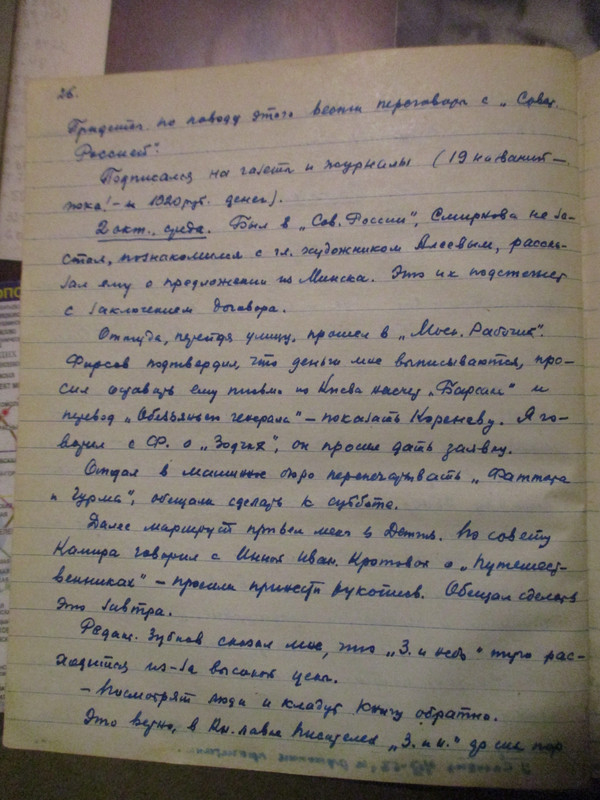 26.
Придется по поводу этого вести переговоры с „Советс.
Россией".
Подписался на газеты и журналы (19 названий –
пока! – и 1920 руб. денег).
2 окт., среда. Был в „Сов. России", Смирнова не за-
стал, познакомился с гл. художником Алеевым, расска-
зал ему о предложении из Минска. Это их подстегнет
с заключением договора.
Оттуда, перейдя улицу, прошел в „Моск. Рабочий".
Фирсов подтвердил, что деньги мне выписываются, про-
сил оставить ему письмо из Киева насчет и
перевод „Обезьяньего генерала" – показать Кореневу. Я го-
ворил с Ф. о „Зодчих", он просил дать заявку.
Отдал в машин. бюро перепечатывать
и Чурма", обещали сделать к субботе.
Далее маршрут привел меня в Детгиз. По совету
Камира говорил с Инной Иван. Кротовой о „Путешест-
венниках" – просила принести рукопись. Обещал сделать
это завтра.
Редак. Зубков сказал мне, что „З. и небо" туго рас-
ходится из-за высокой цены.
– Посмотрят люди и кладут книгу обратно.
Это верно, в Кн. лавке Писателей „З. и н." до сих пор